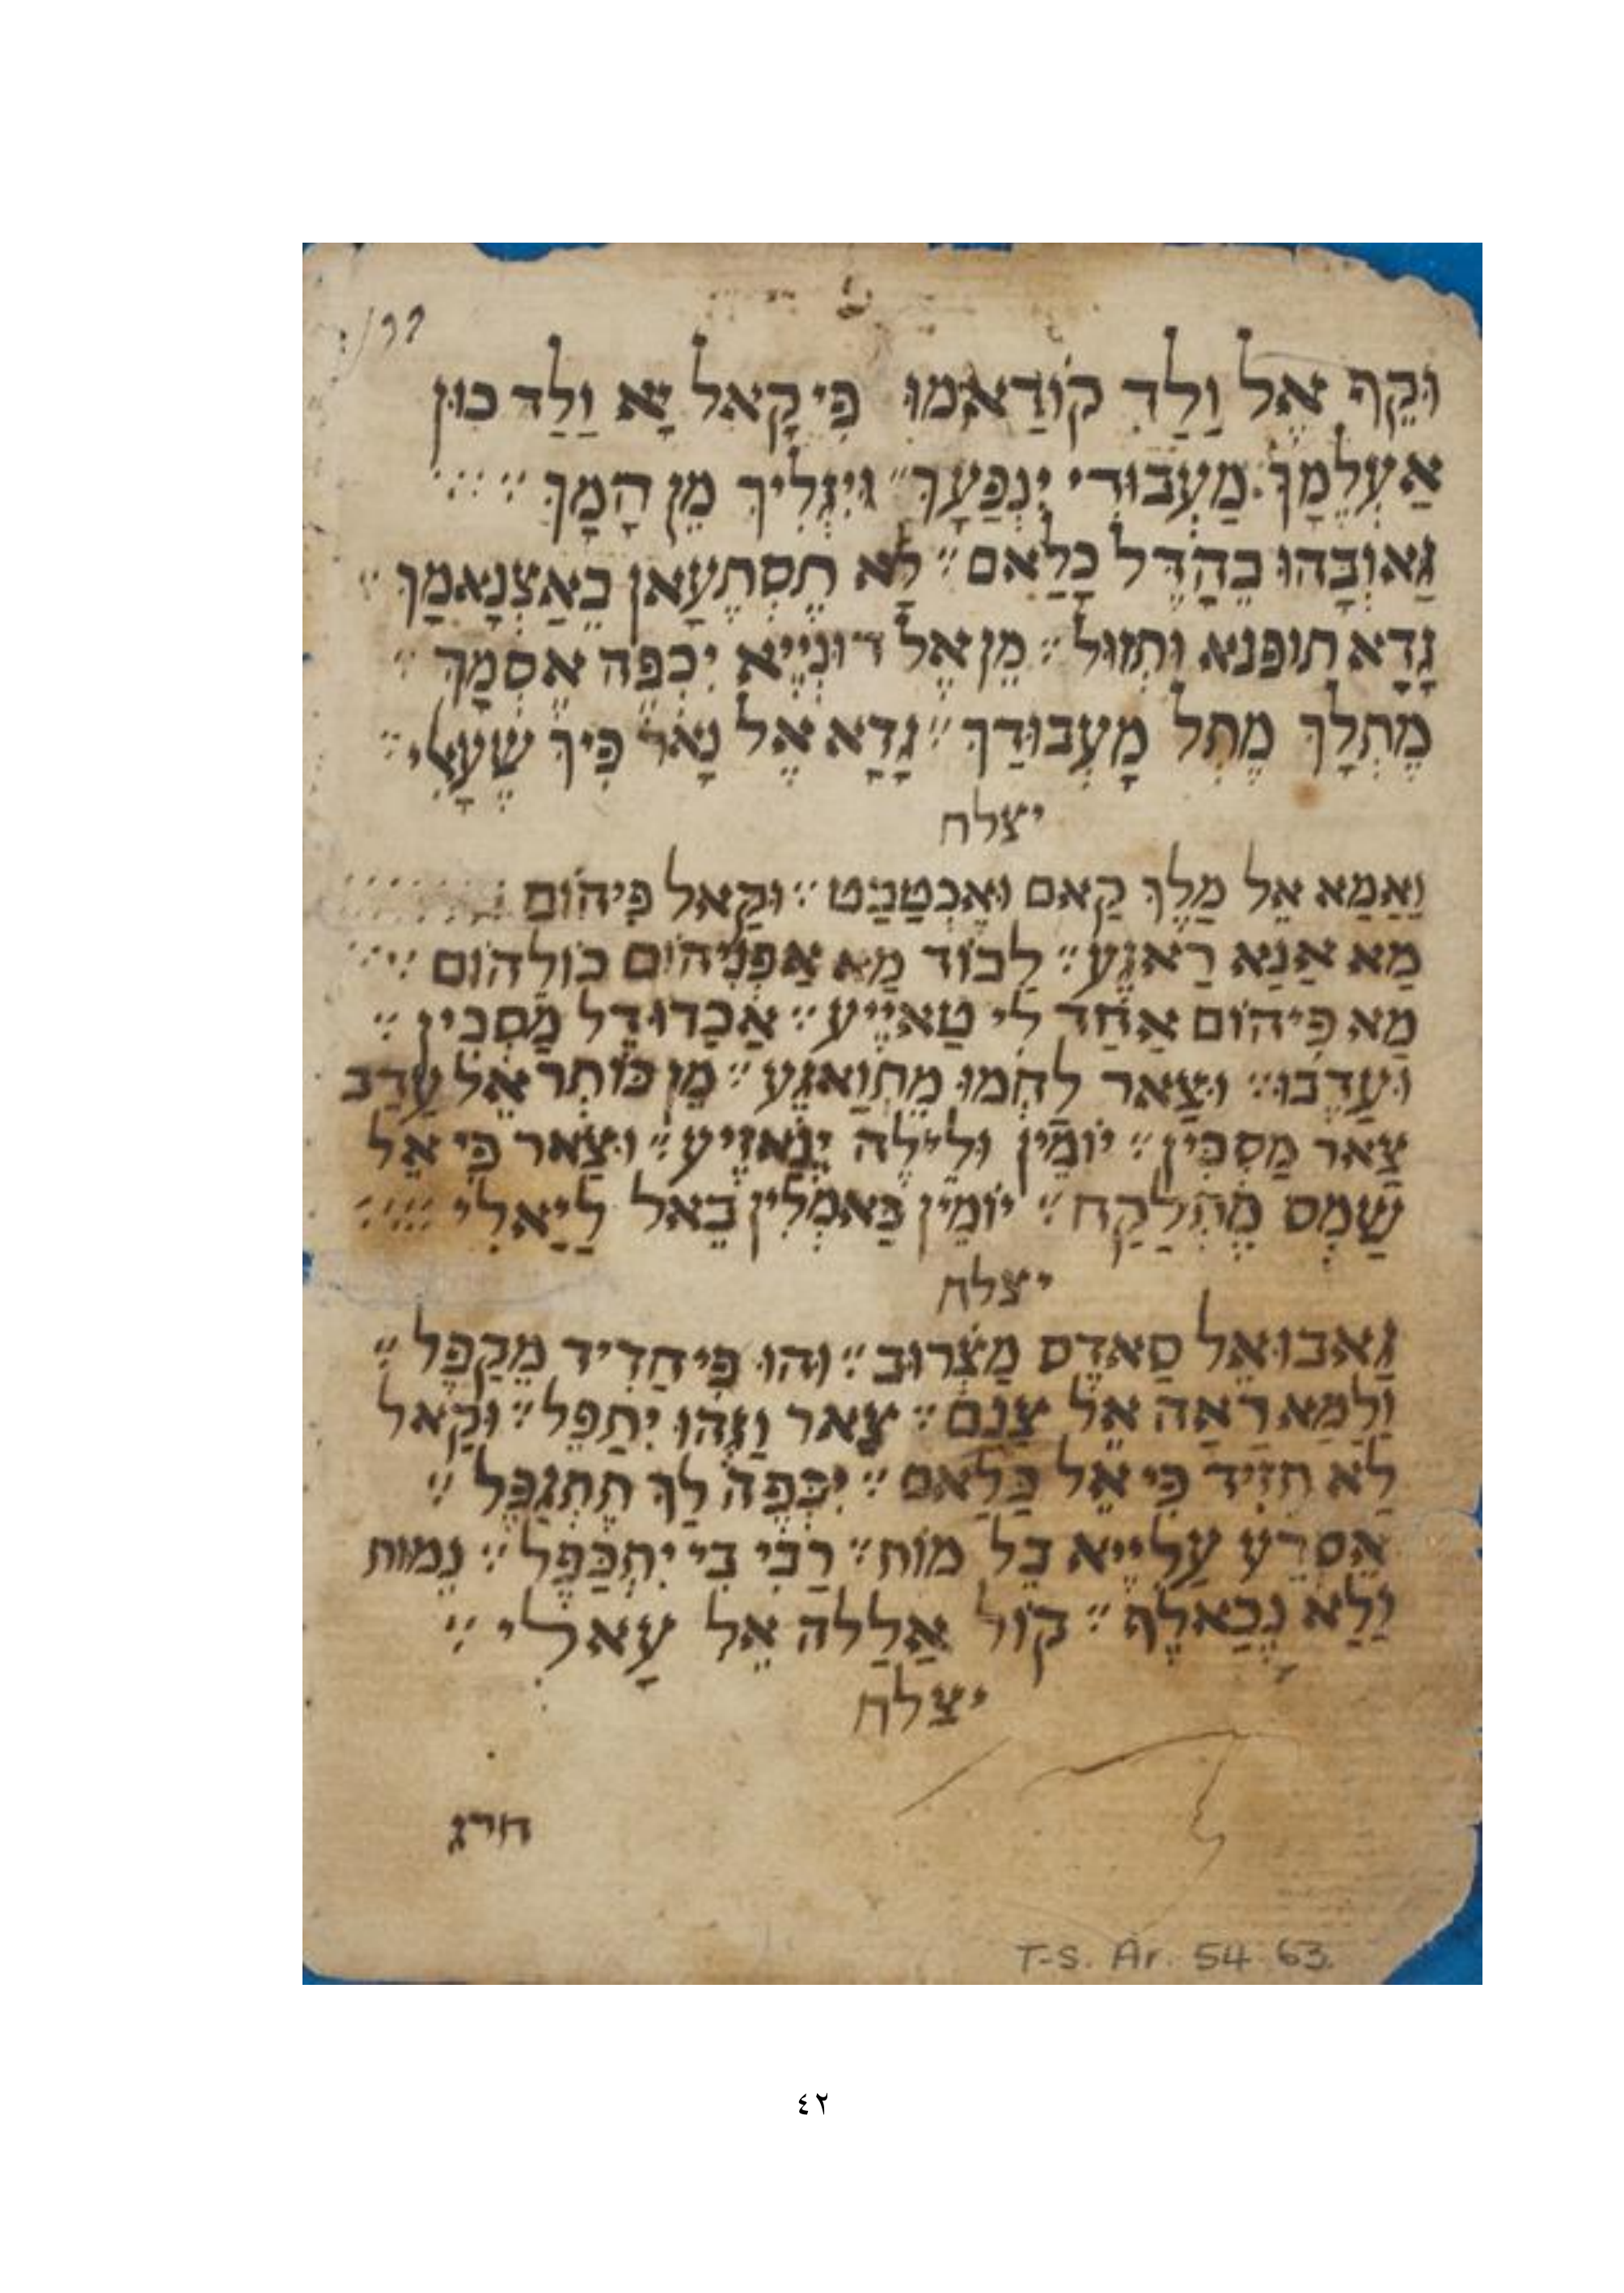 וּקֵף אֶל וַלַד קוֹדַאמוּ פִי קָאל יָא וַלַד כון
אַעְלֵמָךּ מַעְבוּדִי יִנְפַעָךּ וּיִגְלִיךּ מֵן הָמָךּ
גַאוְבָּהוּ בֵהָדֶל כָלַאם לָא תֶסְתֶעָאן בֵאַצְנָאמָךּ
גָדָא תופנא וּתְזוּל מֵן אֶל דוּנְיֶיא יִכְפֶה אֶסְמָךּ
מֶתְלָךּ מֶתְל מָעְבוּדַךּ גָדָא אֶל נָאר פִיךּ שֶעָלִי
יצלח
וַאַמַא אֵל מַלֶךּ קַאם וּאֶכְטַבַט וּקַאל פִיהוֹם
מַא אַנַא רַאגֶע לַבוֹד מַא אַפְנִיהוֹם כוֹלְהוֹם
מַא פִיהוֹם אַחַד לִי טַאיֶיע אַכַדוּ דֶל מַסְכִין
וּעַדְבוּ וּצַאר לַחְמוּ מֶתְוַאגֶע מֵן כוֹתְר אֶל עַדַב
צַאר מַסְכִין יוֹמֵין וּלֵילֶה יְנַאזֶיע וּצַאר פִי אֶל
שַמְס מֶתְלַקַח יוֹמֵין כַאמְלִין בֵאל לַיַאלִי
יצלח
גַאבוּ אֶל סַאדֶס מַצְרוּב וּהוּ פִי חַדִיד מֵקַפֶל
וַלַמַא רַאַה אֶל צַנַם צַאר וַגְהוּ יִתְפֵל וּקַאל
לַא תְזִיד פִי אֶל כַלַאם יִכְפֶה לַךּ תֶתְגַפֶל
אֵסְרֵע עַלֵייא בֵל מוֹת רַבִי בִי יִתְכַפֶל נְמוּת
וַלַא נְכַאלֶף קוֹל אַלַלה אֶל עָאלִי
יצלח
חרג
T-S. Ar. 54. 63.
٤٢